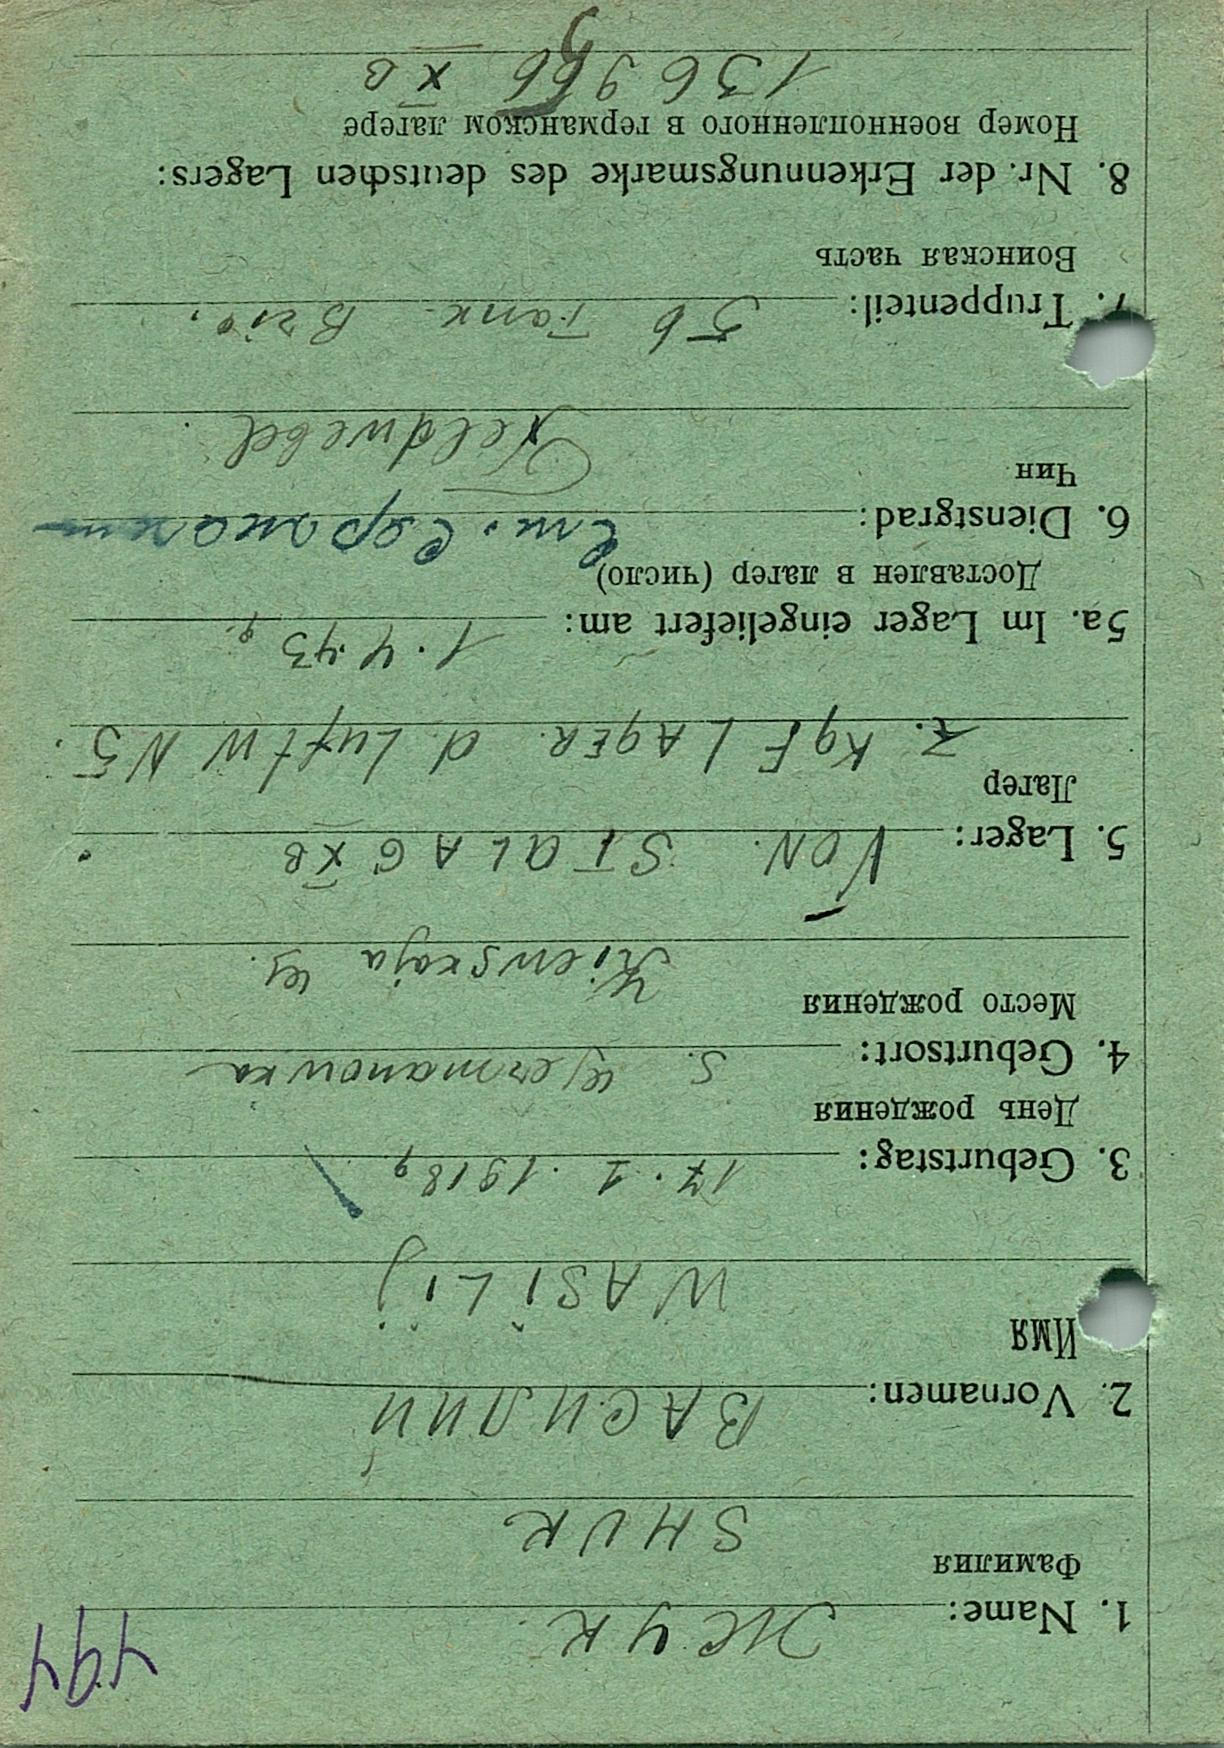 494
1. Name: ЖУК
Фамилия
SHUK
2. Vornamen: ВАСИЛИЙ
Имя
WASILIJ
3. Geburtstag: 17.1.1918
День рождения
4. Geburtsort: S. Germanowka
Место рождения
Kiewskaja
5. Lager: VON. STALAG XB
Лагер
z. KgF LAgER. d. LuftW N5.
5a. Im Lager eingeliefert am: 1.4.43
Доставлен в лагер (число)
6. Dienstgrad: Ст. Сержант
Чин
Feldwebel
7. Truppenteil: 56 Танк.
Воинская часть
8. Nr. der Erkennungsmarke des deutschen Lagers:
Номер военнопленного в германском лагере
XB